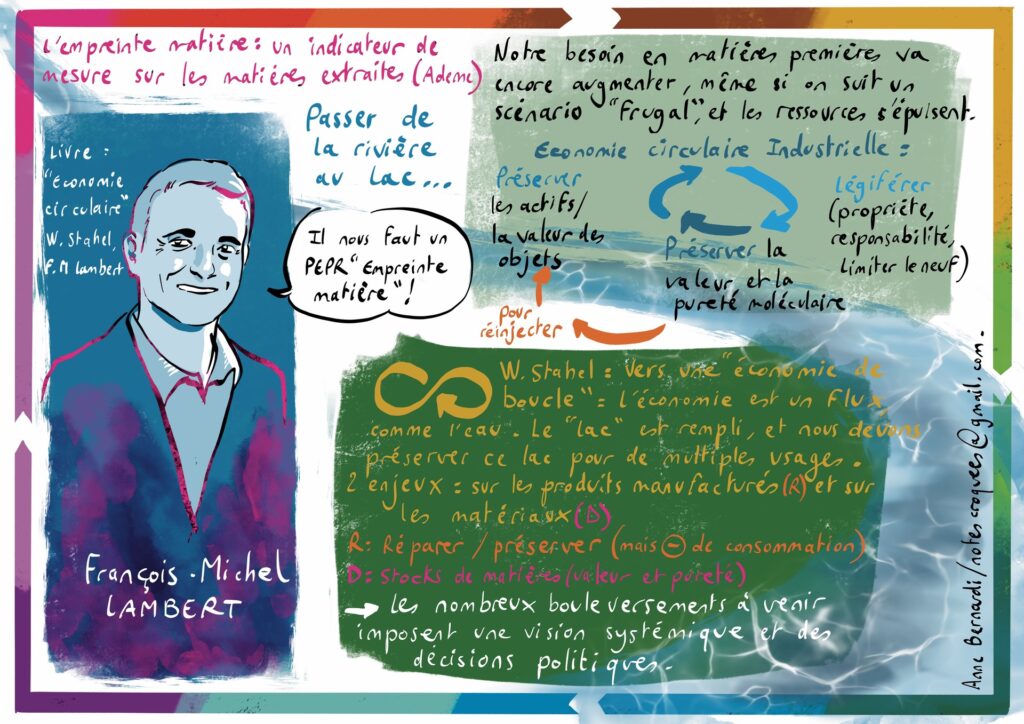 L'empreinte matière : un indicateur de
mesure sur les matières extraites (Ademe)
Passer de
la rivière
au lac...
Livre :
"Economie
circulaire"
W. Stahel,
F.M Lambert
Il nous faut un
PEPR "Empreinte
matière" !
François-Michel
LAMBERT
Notre besoin en matières premières va
encore augmenter, même si on suit un
scénario "Frugal", et les ressources s'épuisent.
Economie circulaire Industrielle :
Préserver
les actifs/
la valeur des
objets
Préserver la
valeur et la
pureté moléculaire
Légiférer
(propriété,
responsabilité,
limiter le neuf)
pour
réinjecter
W. Stahel : Vers une "économie de
boucle" : l'économie est un flux,
comme l'eau. Le "lac" est rempli, et nous devons
préserver ce lac pour de multiples usages.
2 enjeux : sur les produits manufacturés (R) et sur
les matériaux (D)
R : Réparer / préserver (mais ⊖ de consommation)
D : Stocks de matières (valeur et pureté)
→ Les nombreux bouleversements à venir
imposent une vision systémique et des
décisions politiques.
Anne Bernardi/notescroquees@gmail.com.